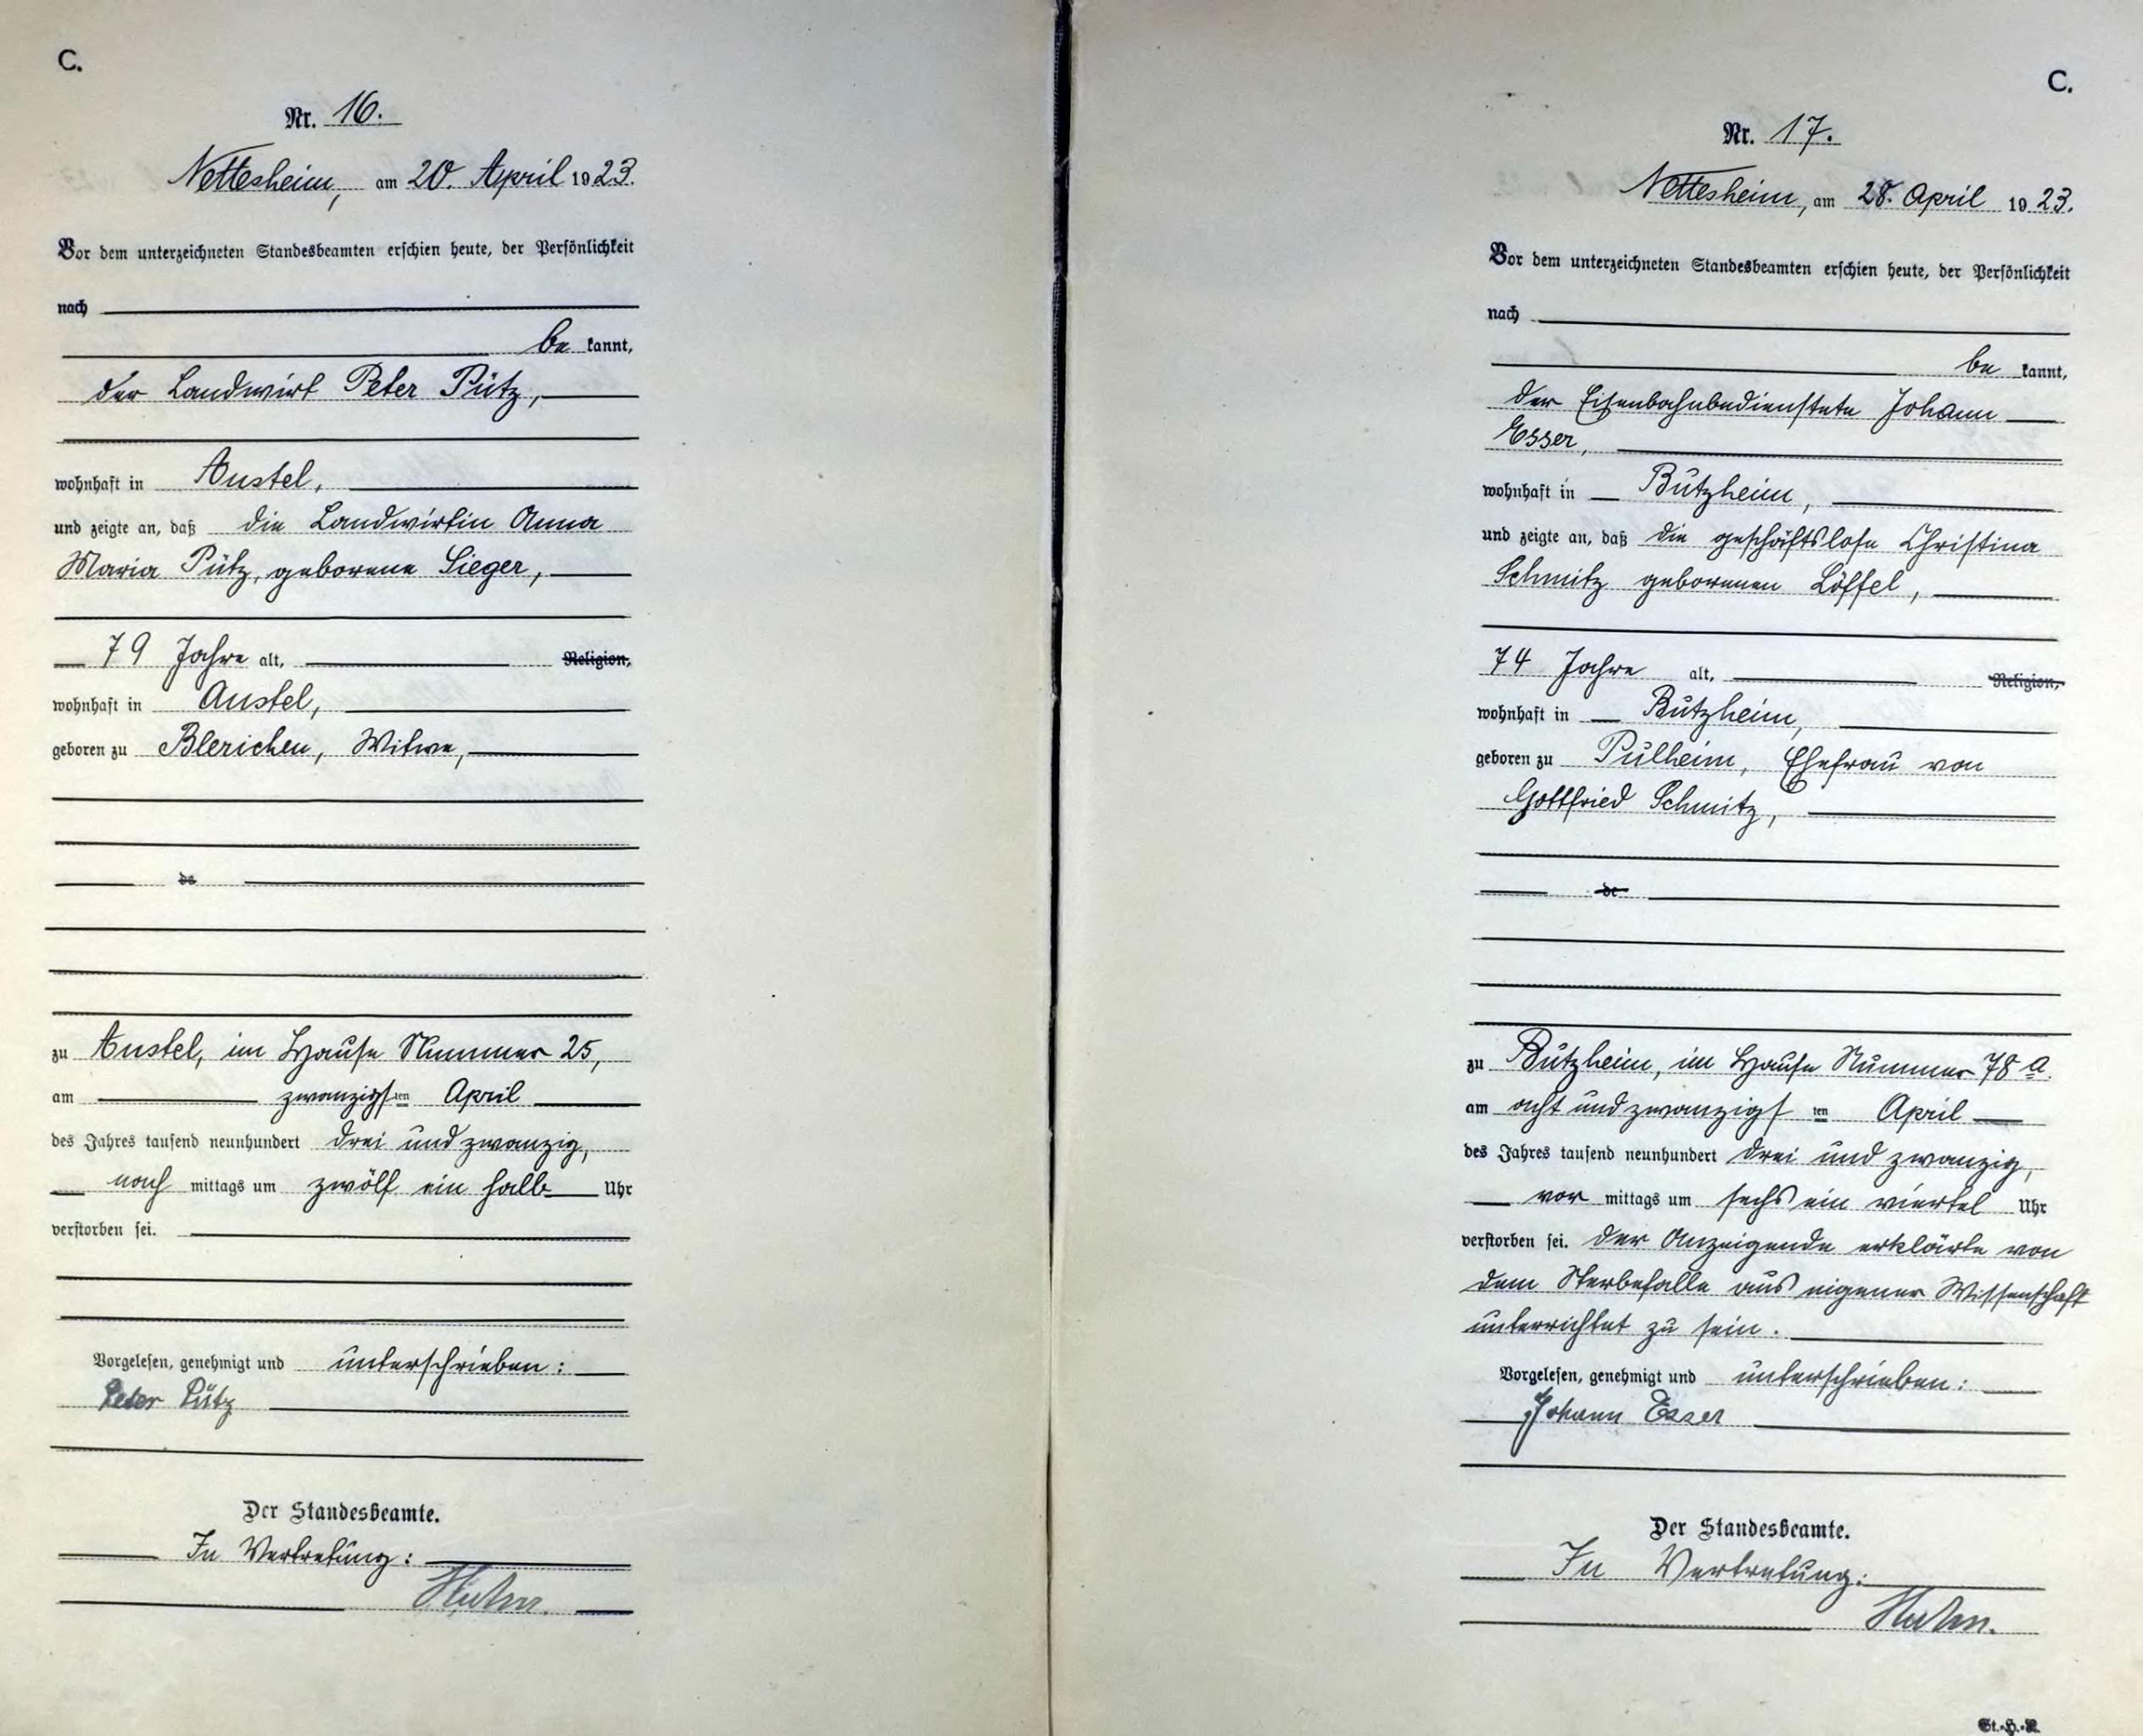 C.
Nr. 16.
Nettesheim, am 20. April 1923.
Vor dem unterzeichneten Standesbeamten erschien heute, der Persönlichkeit
nach
be kannt,
der Landwirt Peter Pütz,
wohnhaft in Anstel,
und zeigte an, daß die Landwirtin Anna
Maria Pütz, geborene Sieger,
79 Jahre alt, Religion,
wohnhaft in Anstel,
geboren zu Blerichen, Witwe,
de
zu Anstel, im Hause Nummer 25,
am zwanzigsten April
des Jahres tausend neunhundert drei und zwanzig,
nach mittags um zwölf ein halb Uhr
verstorben sei.
Vorgelesen, genehmigt und unterschrieben:
Peter Pütz
Der Standesbeamte.
In Vertretung:
C.
Nr. 17.
Nettesheim, am 28. April 1923.
Vor dem unterzeichneten Standesbeamten erschien heute, der Persönlichkeit
nach
be kannt,
der Eisenbahnbedienstete Johann
Esser,
wohnhaft in Bützheim,
und zeigte an, daß die geschäftslose Christina
Schmitz geborenen Löffel,
74 Jahre alt, Religion,
wohnhaft in Bützheim,
geboren zu Pulheim, Ehefrau von
Gottfried Schmitz,
de
zu Bützheim, im Hause Nummer 78 a.
am acht und zwanzigsten April
des Jahres tausend neunhundert drei und zwanzig,
vor mittags um sechs ein viertel Uhr
verstorben sei. Der Anzeigende erklärte von
dem Sterbefalle aus eigener Wissenschaft
unterrichtet zu sein.
Vorgelesen, genehmigt und unterschrieben:
Johann Esser
Der Standesbeamte.
In Vertretung: